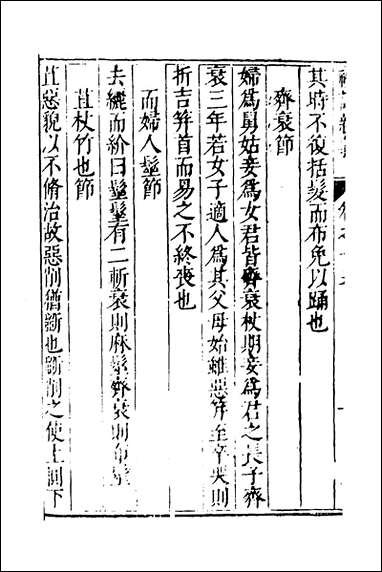 其時不復括髮而布免以踊也
齊衰節
婦爲舅姑妾爲女君皆齊衰杖期妾爲君之長子齊
衰三年若女子適人爲其父母始雖惡笄至卒哭則
折吉笄首而易之不終喪也
而婦人髽節
去纚而紒曰髽髽有二斬衰則麻髽齊衰則布髽
苴杖竹也節
苴惡貌以不脩治故惡削猶斷也斷削之使上圓下